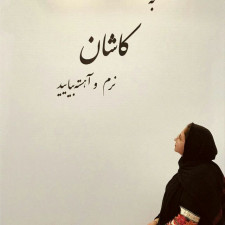 به
کاشان
نرم و آهسته بیایید